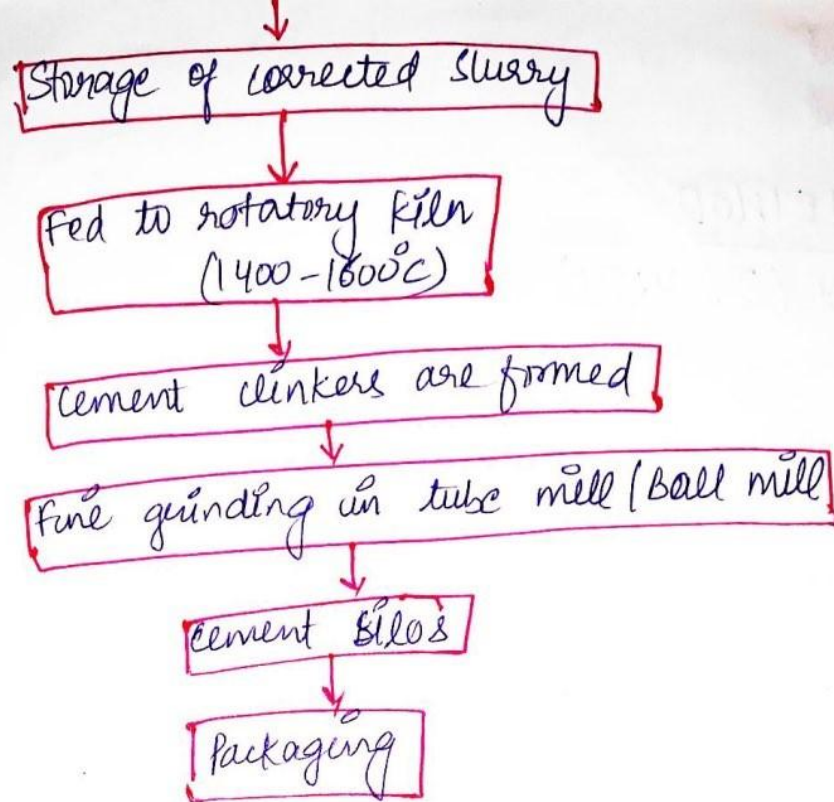 Storage of corrected slurry
Fed to rotatory kiln
(1400-1600°C)
Cement clinkers are formed
Fine grinding in tube mill/Ball mill
Cement silos
Packaging